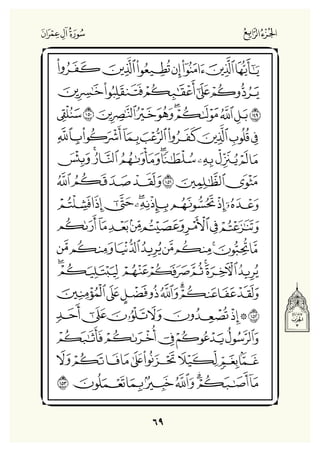 سُورَةُ آلِ عِمْرَان الجُزْءُ الرَّابِعُ
يَٰٓأَيُّهَا ٱلَّذِينَ ءَامَنُوٓا۟ إِن تُطِيعُوا۟ ٱلَّذِينَ كَفَرُوا۟
يَرُدُّوكُمْ عَلَىٰٓ أَعْقَٰبِكُمْ فَتَنقَلِبُوا۟ خَٰسِرِينَ
١٤٩ بَلِ ٱللَّهُ مَوْلَىٰكُمْ ۖ وَهُوَ خَيْرُ ٱلنَّٰصِرِينَ ١٥٠ سَنُلْقِى
فِى قُلُوبِ ٱلَّذِينَ كَفَرُوا۟ ٱلرُّعْبَ بِمَآ أَشْرَكُوا۟ بِٱللَّهِ
مَا لَمْ يُنَزِّلْ بِهِۦ سُلْطَٰنًا ۖ وَمَأْوَىٰهُمُ ٱلنَّارُ ۚ وَبِئْسَ
مَثْوَى ٱلظَّٰلِمِينَ ١٥١ وَلَقَدْ صَدَقَكُمُ ٱللَّهُ
وَعْدَهُۥٓ إِذْ تَحُسُّونَهُم بِإِذْنِهِۦ ۖ حَتَّىٰٓ إِذَا فَشِلْتُمْ
وَتَنَٰزَعْتُمْ فِى ٱلْأَمْرِ وَعَصَيْتُم مِّنۢ بَعْدِ مَآ أَرَىٰكُم
مَّا تُحِبُّونَ ۚ مِنكُم مَّن يُرِيدُ ٱلدُّنْيَا وَمِنكُم مَّن
يُرِيدُ ٱلْءَاخِرَةَ ۚ ثُمَّ صَرَفَكُمْ عَنْهُمْ لِيَبْتَلِيَكُمْ ۖ
وَلَقَدْ عَفَا عَنكُمْ ۗ وَٱللَّهُ ذُو فَضْلٍ عَلَى ٱلْمُؤْمِنِينَ
١٥٢ ۞ إِذْ تُصْعِدُونَ وَلَا تَلْوُۥنَ عَلَىٰٓ أَحَدٍ
وَٱلرَّسُولُ يَدْعُوكُمْ فِىٓ أُخْرَىٰكُمْ فَأَثَٰبَكُمْ
غَمًّۢا بِغَمٍّ لِّكَيْلَا تَحْزَنُوا۟ عَلَىٰ مَا فَاتَكُمْ وَلَا
مَآ أَصَٰبَكُمْ ۗ وَٱللَّهُ خَبِيرٌۢ بِمَا تَعْمَلُونَ ١٥٣
٦٩